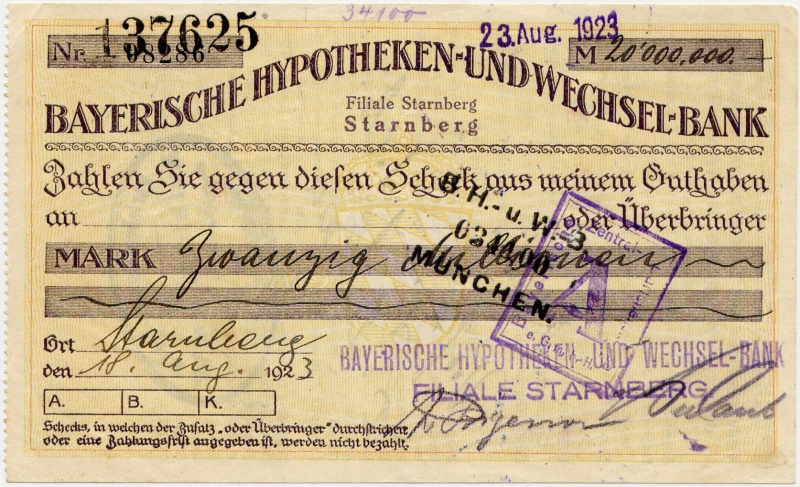 34100
23. Aug. 1923
137625
Nr. 08286
M 20'000,000.-
BAYERISCHE HYPOTHEKEN-UND-WECHSEL-BANK
Filiale Starnberg
Starnberg
Zahlen Sie gegen diesen Scheck aus meinem Guthaben
an oder Überbringer
B. H.- u. W.-B.
031100
MÜNCHEN.
MARK Zwanzig Millionen
Zentral
A
e.G.m.b.H.
Ort Starnberg
den 18. Aug. 1923
BAYERISCHE HYPOTHEKEN UND WECHSEL-BANK
FILIALE STARNBERG
A. B. K.
Schecks, in welchen der Zusatz „oder Überbringer" durchstrichen
oder eine Zahlungsfrist angegeben ist, werden nicht bezahlt.